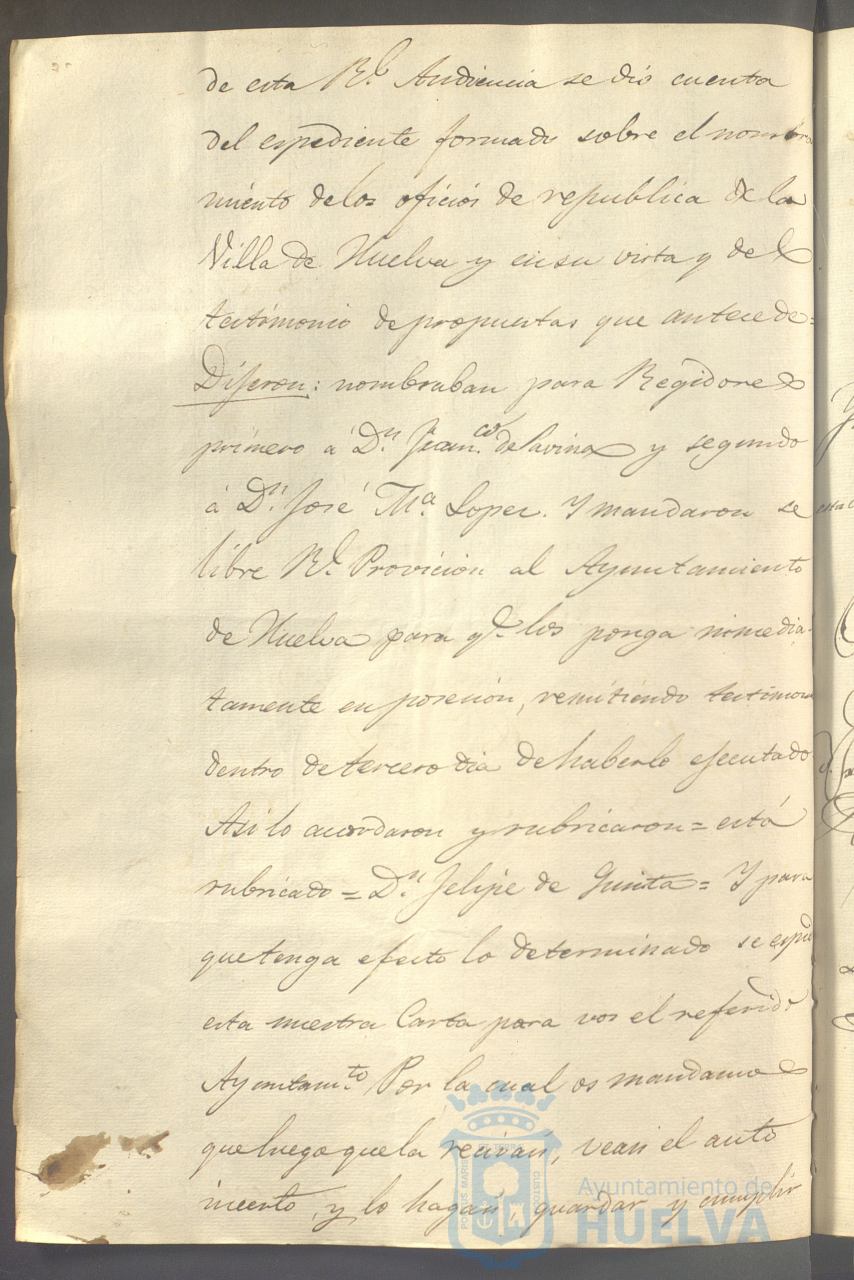 de esta Rl. Audiencia se dió cuenta
del espediente formado sobre el nombra
miento de los oficios de republica de la
Villa de Huelva y en su vista y del
testimonio de propuestas que antecede=
Dijeron: nombraban para Regidores
primero á Dn. Franco. de la
y segundo
á Dn. José Ma. Lopez. Y mandaron se
libre Rl. Provicion al Ayuntamiento
de Huelva para qe. los ponga inmedia-
tamente en posesion, remitiendo testimonio
dentro de tercero dia de haberlo ejecutado
Asi lo acordaron y rubricaron = está
rubricado = Dn. Felipe de = Y para
que tenga efecto lo determinado se espi
esta nuestra Carta para vos el referido
Ayuntamto. Por la cual os mandamos
que luego que la recivais, veais el auto
incerto, y lo hagais guardar y cumplir
PORTUS MARIS
CUSTODIA
Ayuntamiento de
HUELVA